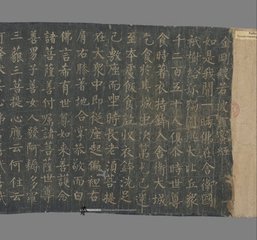 金剛般若波羅蜜經
如是我聞一時佛在舍衛國
祇樹給孤獨園與大比丘衆
千二百五十人俱尒時世尊
食時著衣持鉢入舍衛大城
乞食於其城中次第乞已還
至本處飯食訖收衣鉢洗足
已敷座而坐時長老須菩提
在大衆中即從座起偏袒右
肩右膝著地合掌恭敬而白
佛言希有世尊如來善護念
諸菩薩善付囑諸菩薩世尊
善男子善女人發阿耨多羅
三藐三菩提心應云何住云